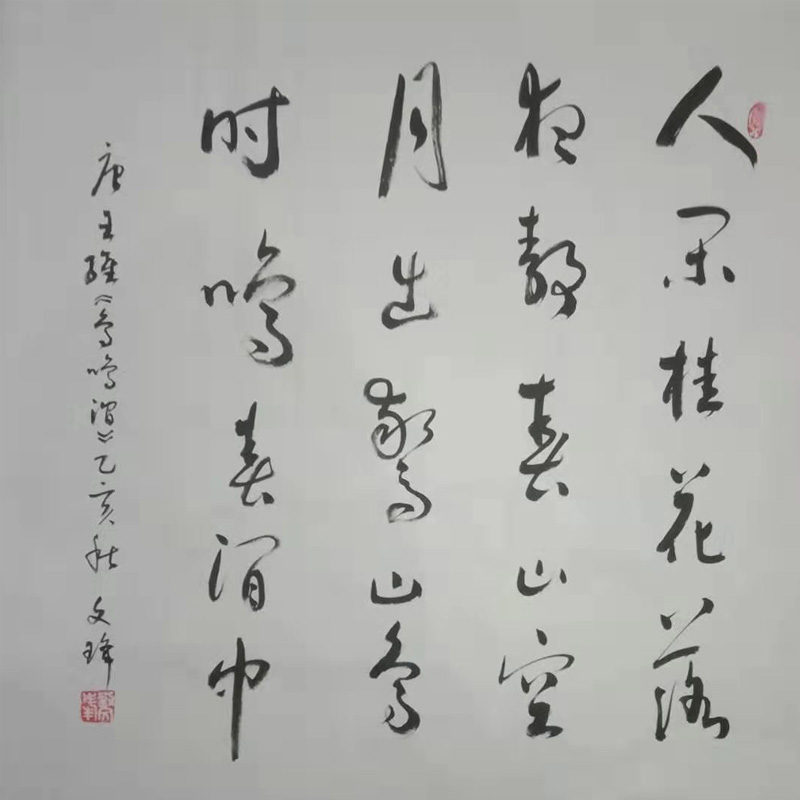 人闲桂花落
夜静春山空
月出驚山鸟
时鸣春涧中
唐王维《鸟鸣涧》乙亥秋 文